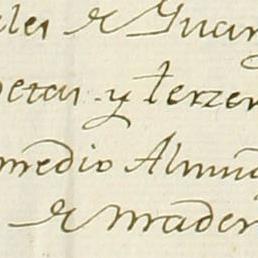 les de Guar
petas y terzer
medio Almu
de mader